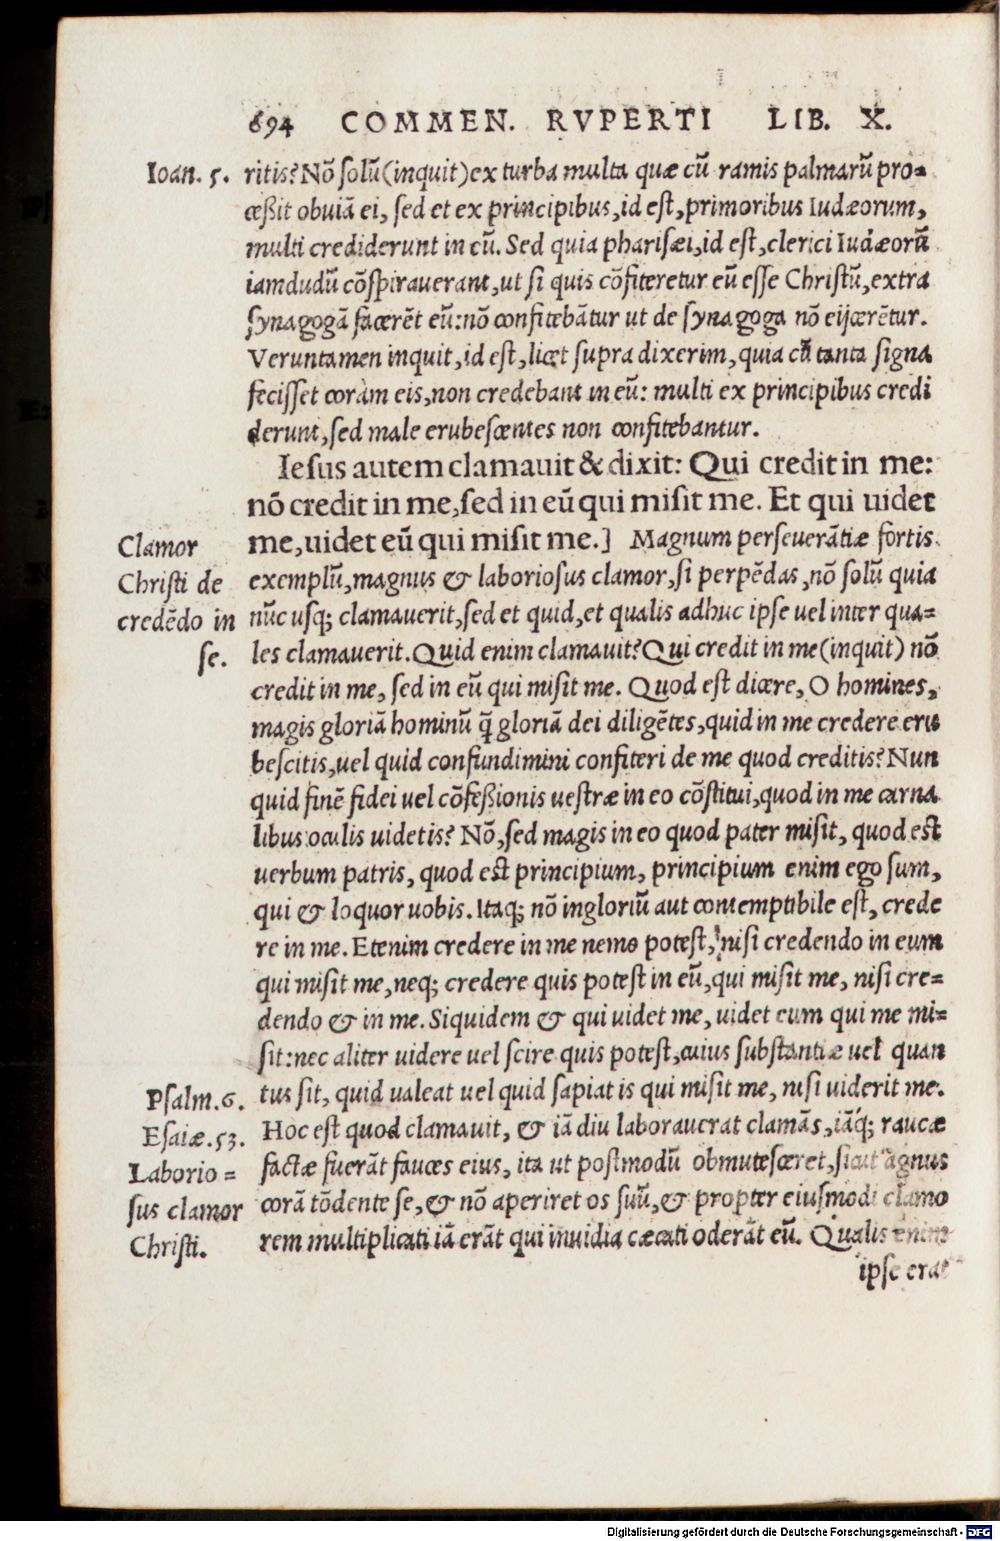 694 COMMEN. RVPERTI LIB. X.
Ioan. 5. ritis? Nō ſolū (inquit) ex turba multa quæ cū ramis palmarū pro=
ceßit obuiā ei, ſed et ex principibus, id eſt, primoribus Iudæorum,
multi crediderunt in eū. Sed quia phariſæi, id eſt, clerici Iudæorū
iamdudū cōſpirauerant, ut ſi quis cōfiteretur eū eſſe Chriſtū, extra
ſynagogā facerēt eū: nō confitebātur ut de ſynagoga nō eijcerētur.
Veruntamen inquit, id eſt, licet ſupra dixerim, quia cū tanta ſigna
feciſſet coràm eis, non credebant in eū: multi ex principibus credi
derunt, ſed male erubeſcentes non confitebantur.
Ieſus autem clamauit & dixit: Qui credit in me:
nō credit in me, ſed in eū qui miſit me. Et qui uidet
me, uidet eū qui miſit me.] Magnum perſeuerātiæ fortis
Clamor
Chriſti de
credēdo in
ſe.
exemplū, magnus & laborioſus clamor, ſi perpēdas, nō ſolū quia
nūc uſq; clamauerit, ſed et quid, et qualis adhuc ipſe uel inter qua=
les clamauerit. Quid enim clamauit? Qui credit in me (inquit) nō
credit in me, ſed in eū qui miſit me. Quod eſt dicere, O homines,
magis gloriā hominū q̄ gloriā dei diligētes, quid in me credere eru
beſcitis, uel quid confundimini confiteri de me quod creditis? Nun
quid finē fidei uel cōfeßionis ueſtræ in eo cōſtitui, quod in me carna
libus oculis uidetis? Nō, ſed magis in eo quod pater miſit, quod eſt
uerbum patris, quod eſt principium, principium enim ego ſum,
qui & loquor uobis. Itaq; nō ingloriū aut contemptibile eſt, crede
re in me. Etenim credere in me nemo poteſt, niſi credendo in eum
qui miſit me, neq; credere quis poteſt in eū, qui miſit me, niſi cre=
dendo & in me. Siquidem & qui uidet me, uidet eum qui me mi=
ſit: nec aliter uidere uel ſcire quis poteſt, cuius ſubſtantiæ uel quan
tus ſit, quid ualeat uel quid ſapiat is qui miſit me, niſi uiderit me.
Pſalm. 6.
Eſaiæ. 53.
Laborio=
ſus clamor
Chriſti.
Hoc eſt quod clamauit, & iā diu laborauerat clamās, iāq́; raucæ
factæ fuerāt fauces eius, ita ut poſtmodū obmuteſceret, ſicut agnus
corā tōdente ſe, & nō aperiret os ſuū, & propter eiuſmodi clamo
rem multiplicati iā erāt qui inuidia cæcati oderāt eū. Qualis enim
ipſe erat
Digitalisierung gefördert durch die Deutsche Forschungsgemeinschaft - DFG